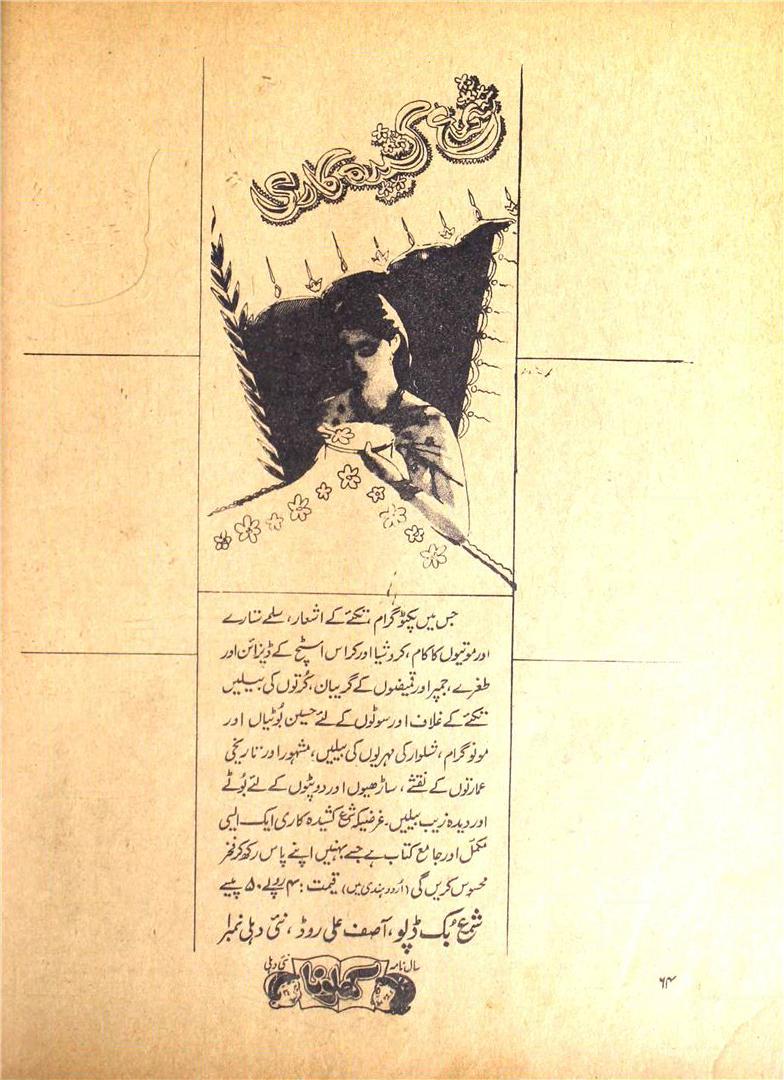 شمع کشیدہ کاری
جس میں پکٹوگرام، تکئے کے اشعار، سلمے ستارے
اور موتیوں کا کام، کروشیا اور کراس اسٹچ کے ڈیزائن اور
طغرے، جمپر اور قمیضوں کے گریبان، کُرتوں کی بیلیں
تکئے کے غلاف اور سوٹوں کے لئے حسین بُوٹیاں اور
مونوگرام، شلوار کی مہریوں کی بیلیں، مشہور اور تاریخی
عمارتوں کے نقشے، ساڑھیوں اور دوپٹوں کے لئے بُوٹے
اور دیدہ زیب بیلیں۔ غرضیکہ شمع کشیدہ کاری ایک ایسی
مکمل اور جامع کتاب ہے جسے بہنیں اپنے پاس رکھ کر فخر
محسوس کریں گی (اُردو ہندی میں) قیمت: ۴ روپے ۵۰ پیسے
شمع بُک ڈپو، آصف علی روڈ، نئی دہلی نمبر۱
سال نامہ کھلونا نئی دہلی
۶۴